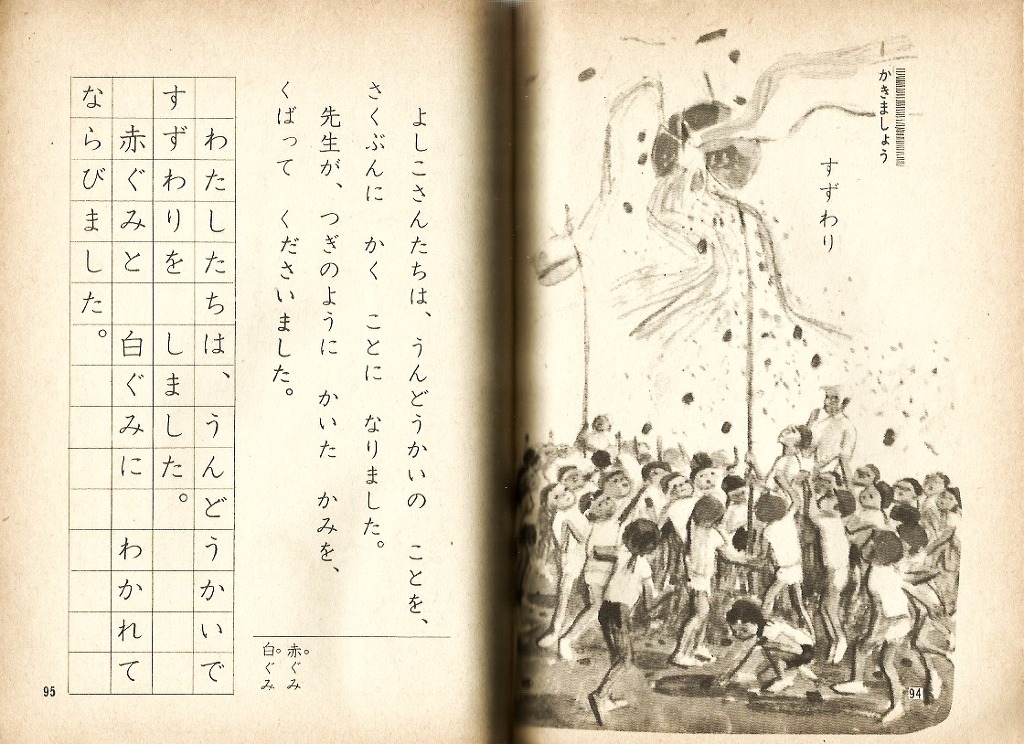 かきましょう
すずわり
94
よしこさんたちは、うんどうかいの ことを、
さくぶんに かく ことに なりました。
先生が、つぎのように かいた かみを、
くばって くださいました。
赤ぐみ
白ぐみ
わたしたちは、うんどうかいで
すずわりを しました。
赤ぐみと 白ぐみに わかれて
ならびました。
95